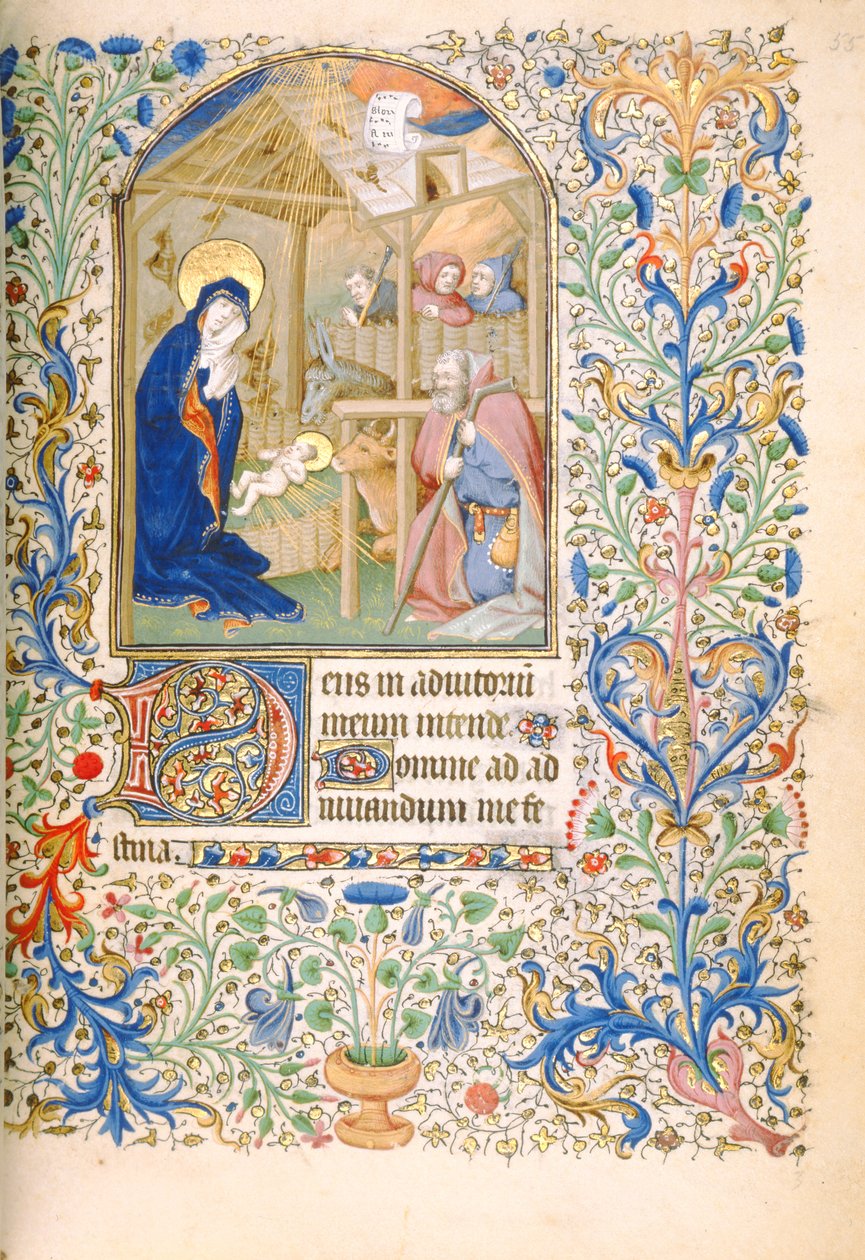 55
Glori
A in
Deus in adiutoriū
meum intende.
Domine ad ad
iuuandum me fe
stina.